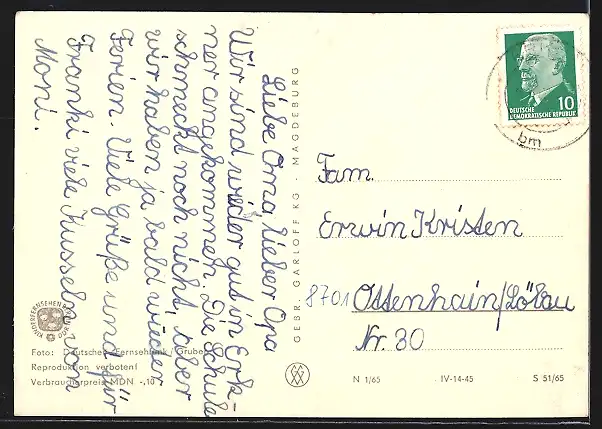 Liebe Oma lieber Opa
Wir sind wieder gut in Erk-
ner angekommen. Die Schule
schmeckt noch nicht, Aber
wir haben ja bald wieder
Ferien. Viele Grüße und für
Franki viele Kusseln von
Moni.
KINDERFERNSEHEN
DDR
Foto: Deutscher Fernsehfunk / Grubel
Reproduktion verboten!
Verbraucherpreis MDN -,10
GEBR. GARLOFF KG · MAGDEBURG
DEUTSCHE
DEMOKRATISCHE REPUBLIK
10
bm
Fam.
Erwin Kristen
8701 Ottenhain/Löbau
Nr. 30
N 1/65 IV-14-45 S 51/65